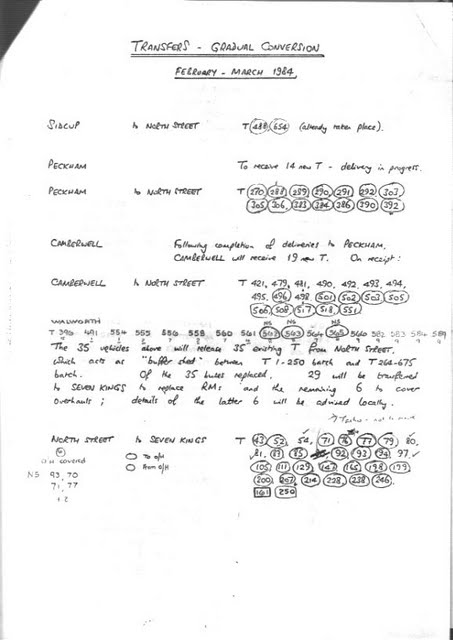 TRANSFERS - GRADUAL CONVERSION
FEBRUARY - MARCH 1984
SIDCUP to NORTH STREET T 488 654 (already taken place).
PECKHAM To receive 14 new T - delivery in progress.
PECKHAM to NORTH STREET T 280 288 289 290 291 292 303
305 306 383 384 386 390 392
CAMBERWELL Following completion of deliveries to PECKHAM,
CAMBERWELL will receive 19 new T. On receipt:
CAMBERWELL to NORTH STREET T 421, 479, 481, 490, 492, 493, 494,
495, 496 498 501 502 503 505
506 508 517 518 551
WALWORTH NS NS NS
T 390 491 554 555 556 558 560 561 562 563 564 565 566 582 583 584 589
The 35 vehicles above will release 35 existing T from NORTH STREET,
which acts as "buffer shed" between T 1-250 batch and T 264-675
batch. Of the 35 buses replaced, 29 will be transferred
to SEVEN KINGS to replace RMs and the remaining 6 to cover
overhauls; details of the latter 6 will be advised locally.
NORTH STREET to SEVEN KINGS T 43 52 54, 71 76 77 79, 80.
81, 83 85 92 93 94 97
105 111 129 142 165 198 199
200 207 214 228 238 246
161 250
O/H covered
To O/H
From O/H
NS 93, 70
71, 77